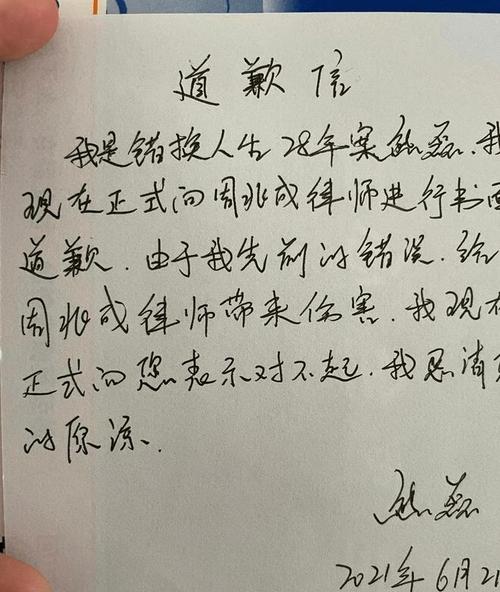 道歉信
我是错换人生28年案熊磊.我
现在正式向周兆成律师进行书面
道歉.由于我先前的错误.给
周兆成律师带来伤害.我现在
正式向您表示对不起.我恳请
的原谅.
熊磊
2021年6月21